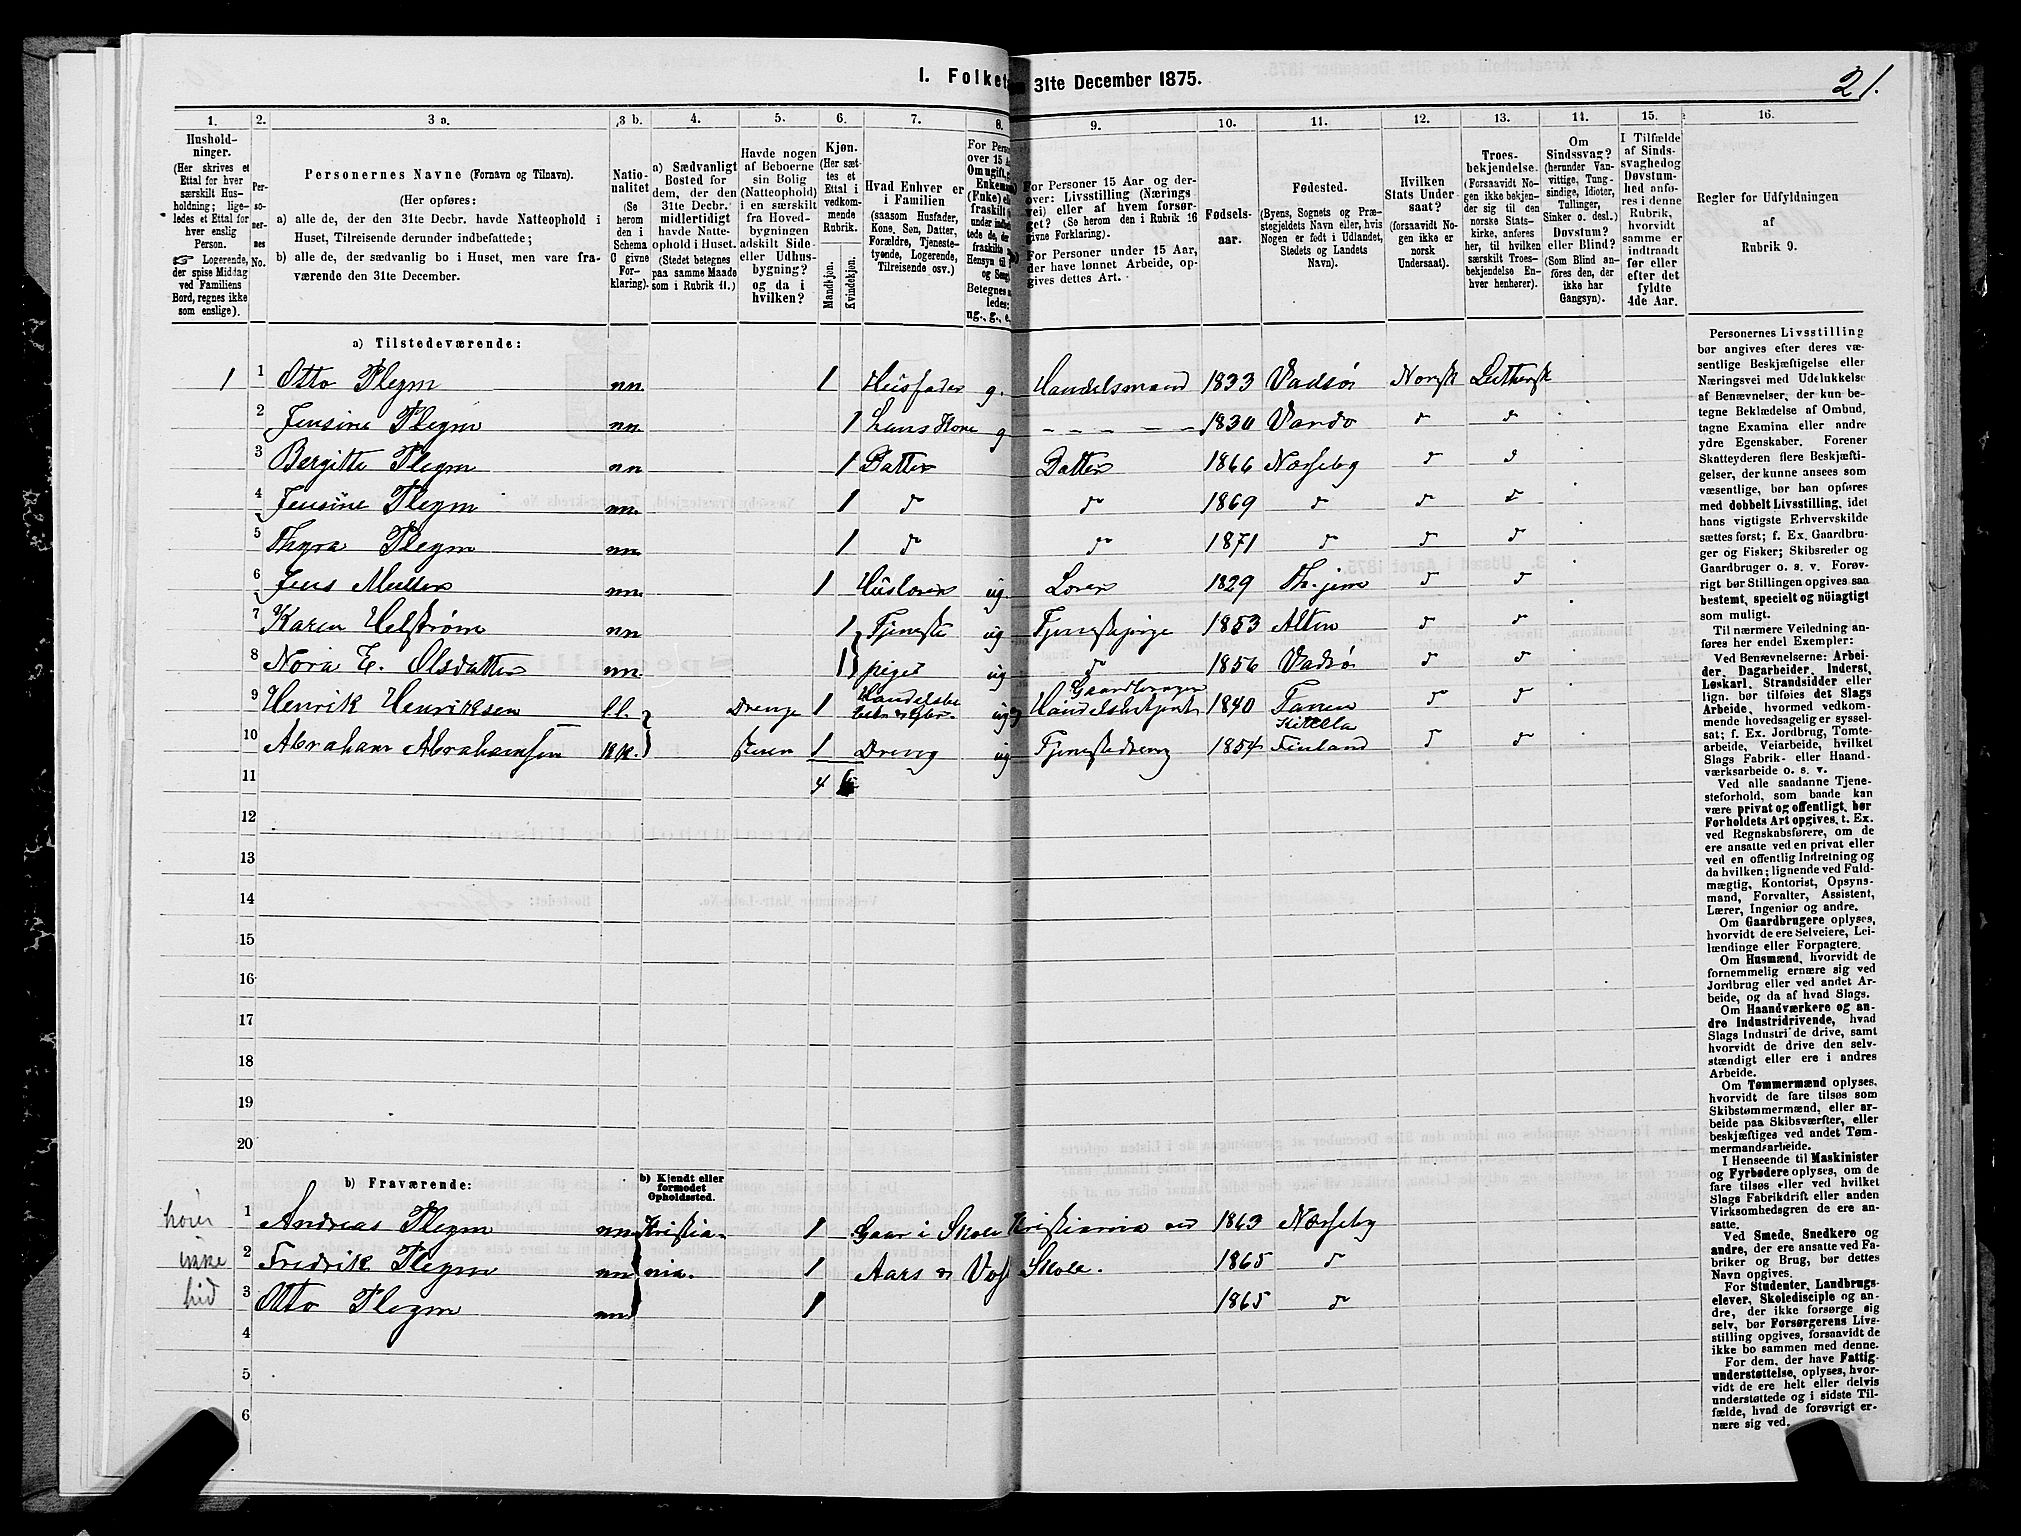 I. Folket 31te December 1875.
21.
1. 2. 3 a. 3 b. 4. 5. 6. 7. 8. 9. 10. 11. 12. 13. 14. 15. 16.
Hushold-
ninger.
(Her skrives et
Ettal for hver
særskilt Hus-
holdning; lige-
ledes et Ettal for
hver enslig
Person.
Logerende,
der spise Middag
ved Familiens
Bord, regnes ikke
som enslige).
Per-
so-
ner-
nes
No.
Personernes Navne (Fornavn og Tilnavn).
(Her opføres:
a) alle de, der den 31te Decbr. havde Natteophold i
Huset, Tilreisende derunder indbefattede;
b) alle de, der sædvanlig bo i Huset, men vare fra-
værende den 31te December.
Natio-
nalitet
(Se
herom
den i
Schema
C givne
For-
klaring).
a) Sædvanligt
Bosted for
dem, der den
31te Decbr.
midlertidigt
havde Natte-
ophold i Huset.
(Stedet betegnes
paa samme Maade
som i Rubrik 11.)
Havde nogen
af Beboerne
sin Bolig
(Natteophold)
i en særskilt
fra Hoved-
bygningen
adskilt Side-
eller Udhus-
bygning?
og da i
hvilken?
Kjøn.
(Her sæt-
tes et
Ettal i
vedkom-
mende
Rubrik.
Mandkjøn.
Kvindekjøn.
Hvad Enhver er
i Familien
(saasom Husfader,
Kone, Søn, Datter,
Forældre, Tjeneste-
tyende, Logerende,
Tilreisende osv.)
For Person
over 15 Aar
Om ugift, g
Enkeman
(Enke) el
fraskilt
Betegnes
ledes:
ug., g., e.
For Personer 15 Aar og der-
over: Livsstilling (Nærings
vei) eller af hvem forsør-
get? (Se herom den i Rubrik 16
givne Forklaring).
For Personer under 15 Aar,
der have lønnet Arbeide, op-
gives dettes Art.
Fødsels-
aar.
Fødested.
(Byens, Sognets og Præ-
stegjeldets Navn eller, hvis
Nogen er født i Udlandet,
Stedets og Landets
Navn).
Hvilken
Stats Under-
saat?
(forsaavidt No-
gen ikke er
norsk
Undersaat).
Troes-
bekjendelse.
(Forsaavidt No-
gen ikke bekjen-
der sig til den
norske Stats-
kirke, anføres
her, til hvilken
særskilt Troes-
bekjendelse En-
hver henhører).
Om
Sindssvag?
(herunder Van-
vittige, Tung-
sindige, Idioter,
Tullinger,
Sinker o. desl.)
Døvstum?
eller Blind?
(Som Blind an-
føres den, der
ikke har
Gangsyn).
I Tilfælde
af Sinds-
svaghed og
Døvstum-
hed anfø-
res i denne
Rubrik,
hvorvidt
samme er
indtraadt
før eller
efter det
fyldte
4de Aar.
Regler for Udfyldningen
af
Rubrik 9.
a) Tilstedeværende:
1 1 Otto Plegm nn. 1 Husfader g. Handelsmand 1833 Vadsø Norsk Luthersk
2 Jensine Plegm nn. 1 hans Kone g – – – – – 1830 Vardø d d
3 Bergitte Plegm nn 1 Datter Datter 1866 Næsseby d d
4 Jensine Plegm nn. 1 d d 1869 d d d
5 Thyra Plegm nn. 1 d d 1871 d d d
6 Jens Muller nn. 1 Huslærer ug. Lærer 1829 d d
7 Karen Helstrøm nn 1 Tjeneste ug Tjenestepige 1853 Alten d d
8 Nora E. Olsdatter nn. 1 piger ug d 1856 Vadsø d d
9 Henrik Henriksen l.l. Drenge 1 ug Handelsbetjent 1840 Tanen d d
10 Abraham Abrahamsen kk. stuen 1 Dreng ug Tjenestedreng 1854 Kittella Finland d d
11 4
12
13
14
15
16
17
18
19
20
b) Fraværende: b) Kjendt eller
formodet
Opholdssted.
hører 1 Andreas Plegm nn Kristia- 1 Gaar i Skole Kristiania ved 1863 Næsseby
ikke 2 Fredrik Plegm nn nia. 1 Aars & Voss Skole. 1865 d
hid 3 Otto Plegm nn 1 1865 d
4
5
6
Personernes Livsstilling
bør angives efter deres væ-
sentlige Beskjæftigelse eller
Næringsvei med Udelukkelse
af Benævnelser, der kun be-
tegne Beklædelse af Ombud,
tagne Examina eller andre
ydre Egenskaber. Forener
Skatteyderen flere Beskjæfti-
gelser, der kunne ansees som
væsentlige, bør han opføres
med dobbelt Livsstilling, idet
hans vigtigste Erhvervskilde
sættes først; f. Ex. Gaardbru-
ger og Fisker; Skibsreder og
Gaardbruger o. s. v. Forøv-
rigt bør Stillingen opgives saa
bestemt, specielt og nöiagtigt
som muligt.
Til nærmere Veiledning an-
føres her endel Exempler:
Ved Benævnelserne: Arbei-
der, Dagarbeider, Inderst,
Løskarl, Strandsidder eller
lign. bør tilføies det Slags
Arbeide, hvormed vedkom-
mende hovedsagelig er syssel-
sat; f. Ex. Jordbrug, Tomte-
arbeide, Veiarbeide, hvilket
Slags Fabrik- eller Haand-
værksarbeide o. s. v.
Ved alle saadanne Tjene-
steforhold, som baade kan
være privat og offentligt, bør
Forholdets Art opgives, t. Ex.
ved Regnskabsførere, om de
ere ansatte ved en privat eller
ved en offentlig Indretning og
da hvilken; lignende ved Fuld-
mægtig, Kontorist, Opsyns-
mand, Forvalter, Assistent,
Lærer, Ingeniør og andre.
Om Gaardbrugere oplyses,
hvorvidt de ere Selveiere, Lei-
lændinge eller Forpagtere.
Om Husmænd, hvorvidt de
fornemmelig ernære sig ved
Jordbrug eller ved andet Ar-
beide, og da af hvad Slags.
Om Haandværkere og an-
dre Industridrivende, hvad
Slags Industri de drive, samt
hvorvidt de drive den selv-
stændigt eller ere i andres
Arbeide.
Om Tømmermænd oplyses,
hvorvidt de fare tilsøs som
Skibstømmermænd, eller ar-
beide paa Skibsværfter, eller
beskjæftiges ved andet Tøm-
mermandsarbeide.
I Henseende til Maskinister
og Fyrbødere oplyses, om de
fare tilsøs eller ved hvilket
Slags Fabrikdrift eller anden
Virksomhedsgren de ere an-
satte.
Ved Smede, Snedkere og
andre, der ere ansatte ved Fa-
briker og Brug, bør dettes
Navn opgives.
For Studenter, Landbrugs-
elever, Skoledisciple og an-
dre, der ikke forsørge sig
selv, bør Forsørgerens Livs-
stilling opgives, forsaavidt de
ikke bo sammen med denne.
For dem, der have Fattig-
understøttelse, oplyses, hvor-
vidt de ere helt eller delvis
understøttede og i sidste Til-
fælde, hvad de forøvrigt er-
nære sig ved.